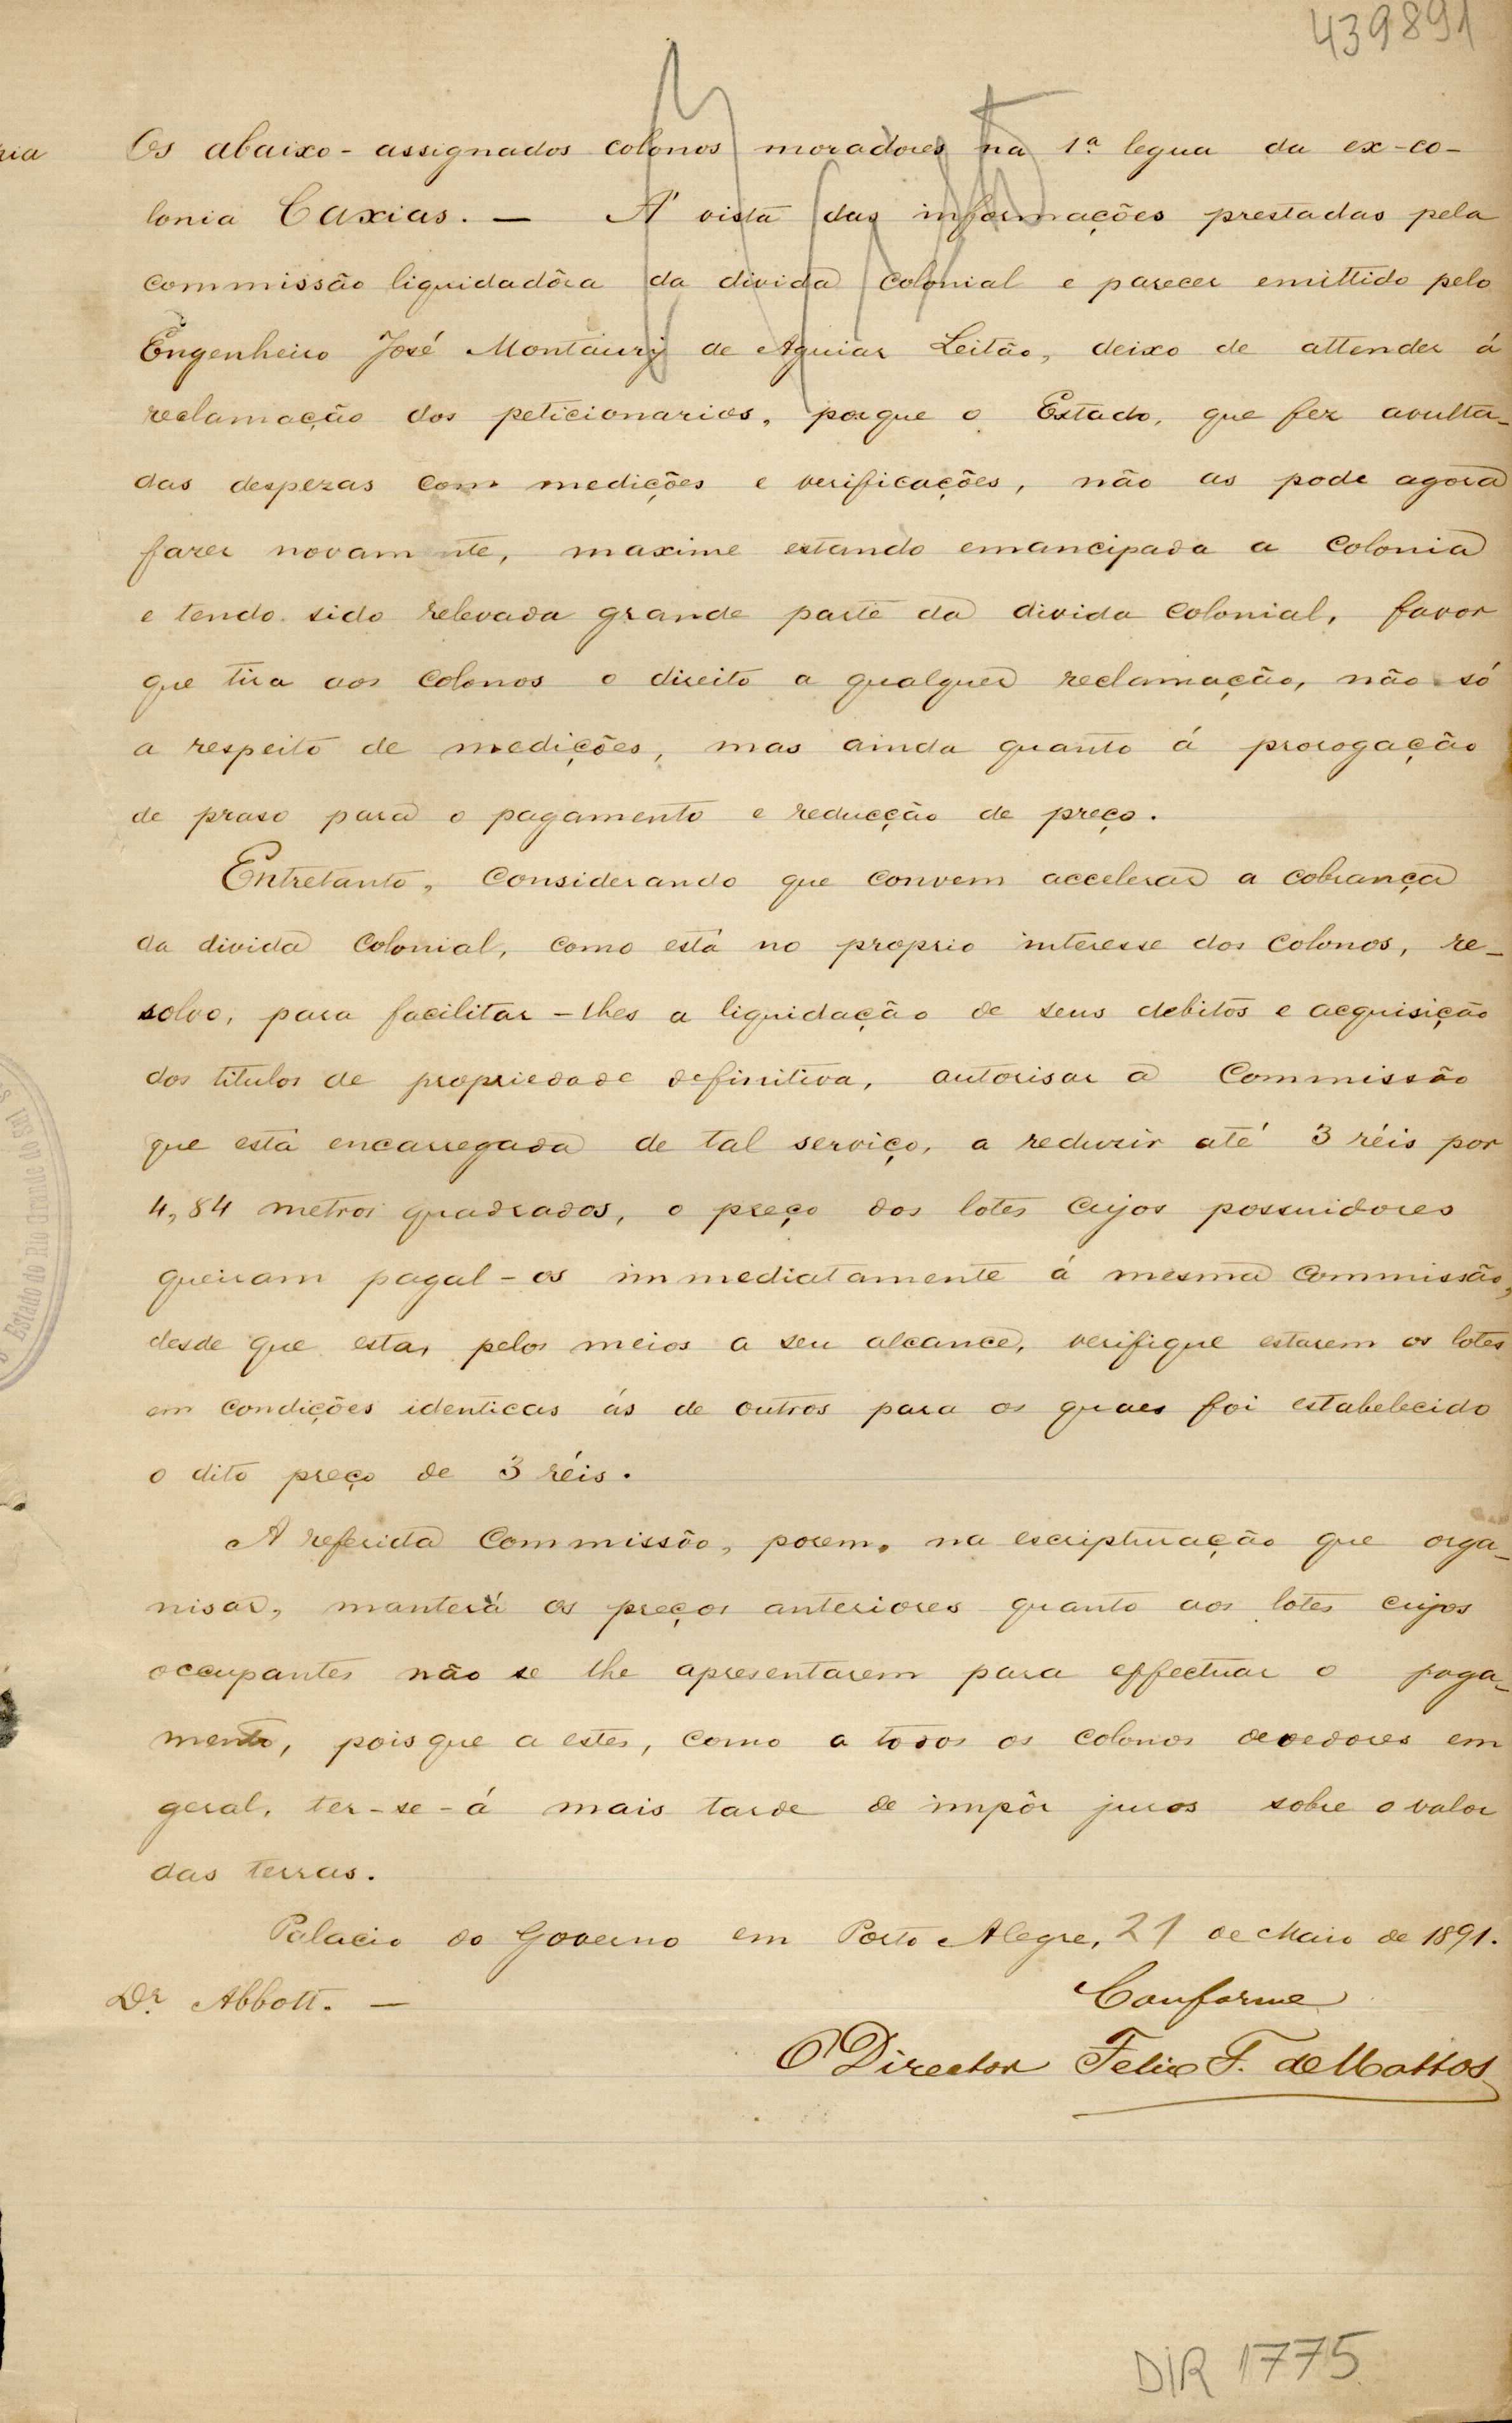 439891
Os abaixo-assignados colonos moradores na 1ª legua da ex-co-
lonia Caxias. — Á vista das informações prestadas pela
commissão liquidadôra da divida colonial e parecer emittido pelo
Engenheiro José Montaury de Aguiar Leitão, deixo de attender á
reclamação dos peticionarios, porque o Estado, que fez avulta-
das despezas com medições e verificações, não as pode agora
fazer novamente, maxime estando emancipada a colonia
e tendo sido relevada grande parte da divida colonial, favor
que tira aos colonos o direito a qualquer reclamação, não só
a respeito de medições, mas ainda quanto á prorogação
de praso para o pagamento e reducção de preço.
Entretanto, considerando que convem accelerar a cobrança
da divida colonial, como está no proprio interesse dos colonos, re-
solvo, para facilitar-lhes a liquidação de seus debitos e acquisição
dos titulos de propriedade definitiva, autorisar a Commissão
que está encarregada de tal serviço, a reduzir até 3 réis por
4,84 metros quadrados, o preço dos lotes cujos possuidores
queiram pagal-os immediatamente á mesma Commissão,
desde que esta, pelos meios a seu alcance, verifique estarem os lotes
em condições identicas ás de outros para os quaes foi estabelecido
o dito preço de 3 réis.
A referida Commissão, porem, na escripturação que orga-
nisar, manterá os preços anteriores quanto aos lotes cujos
occupantes não se lhe apresentarem para effectuar o paga-
mento, pois que a estes, como a todos os colonos devedores em
geral, ter-se-á mais tarde de impôr juros sobre o valor
das terras.
Palacio do Governo em Porto Alegre, 21 de Maio de 1891.
Dr. Abbott. — Conforme
O Director Felix F. de Mattos
Estado do Rio Grande do Sul
DIR 1775